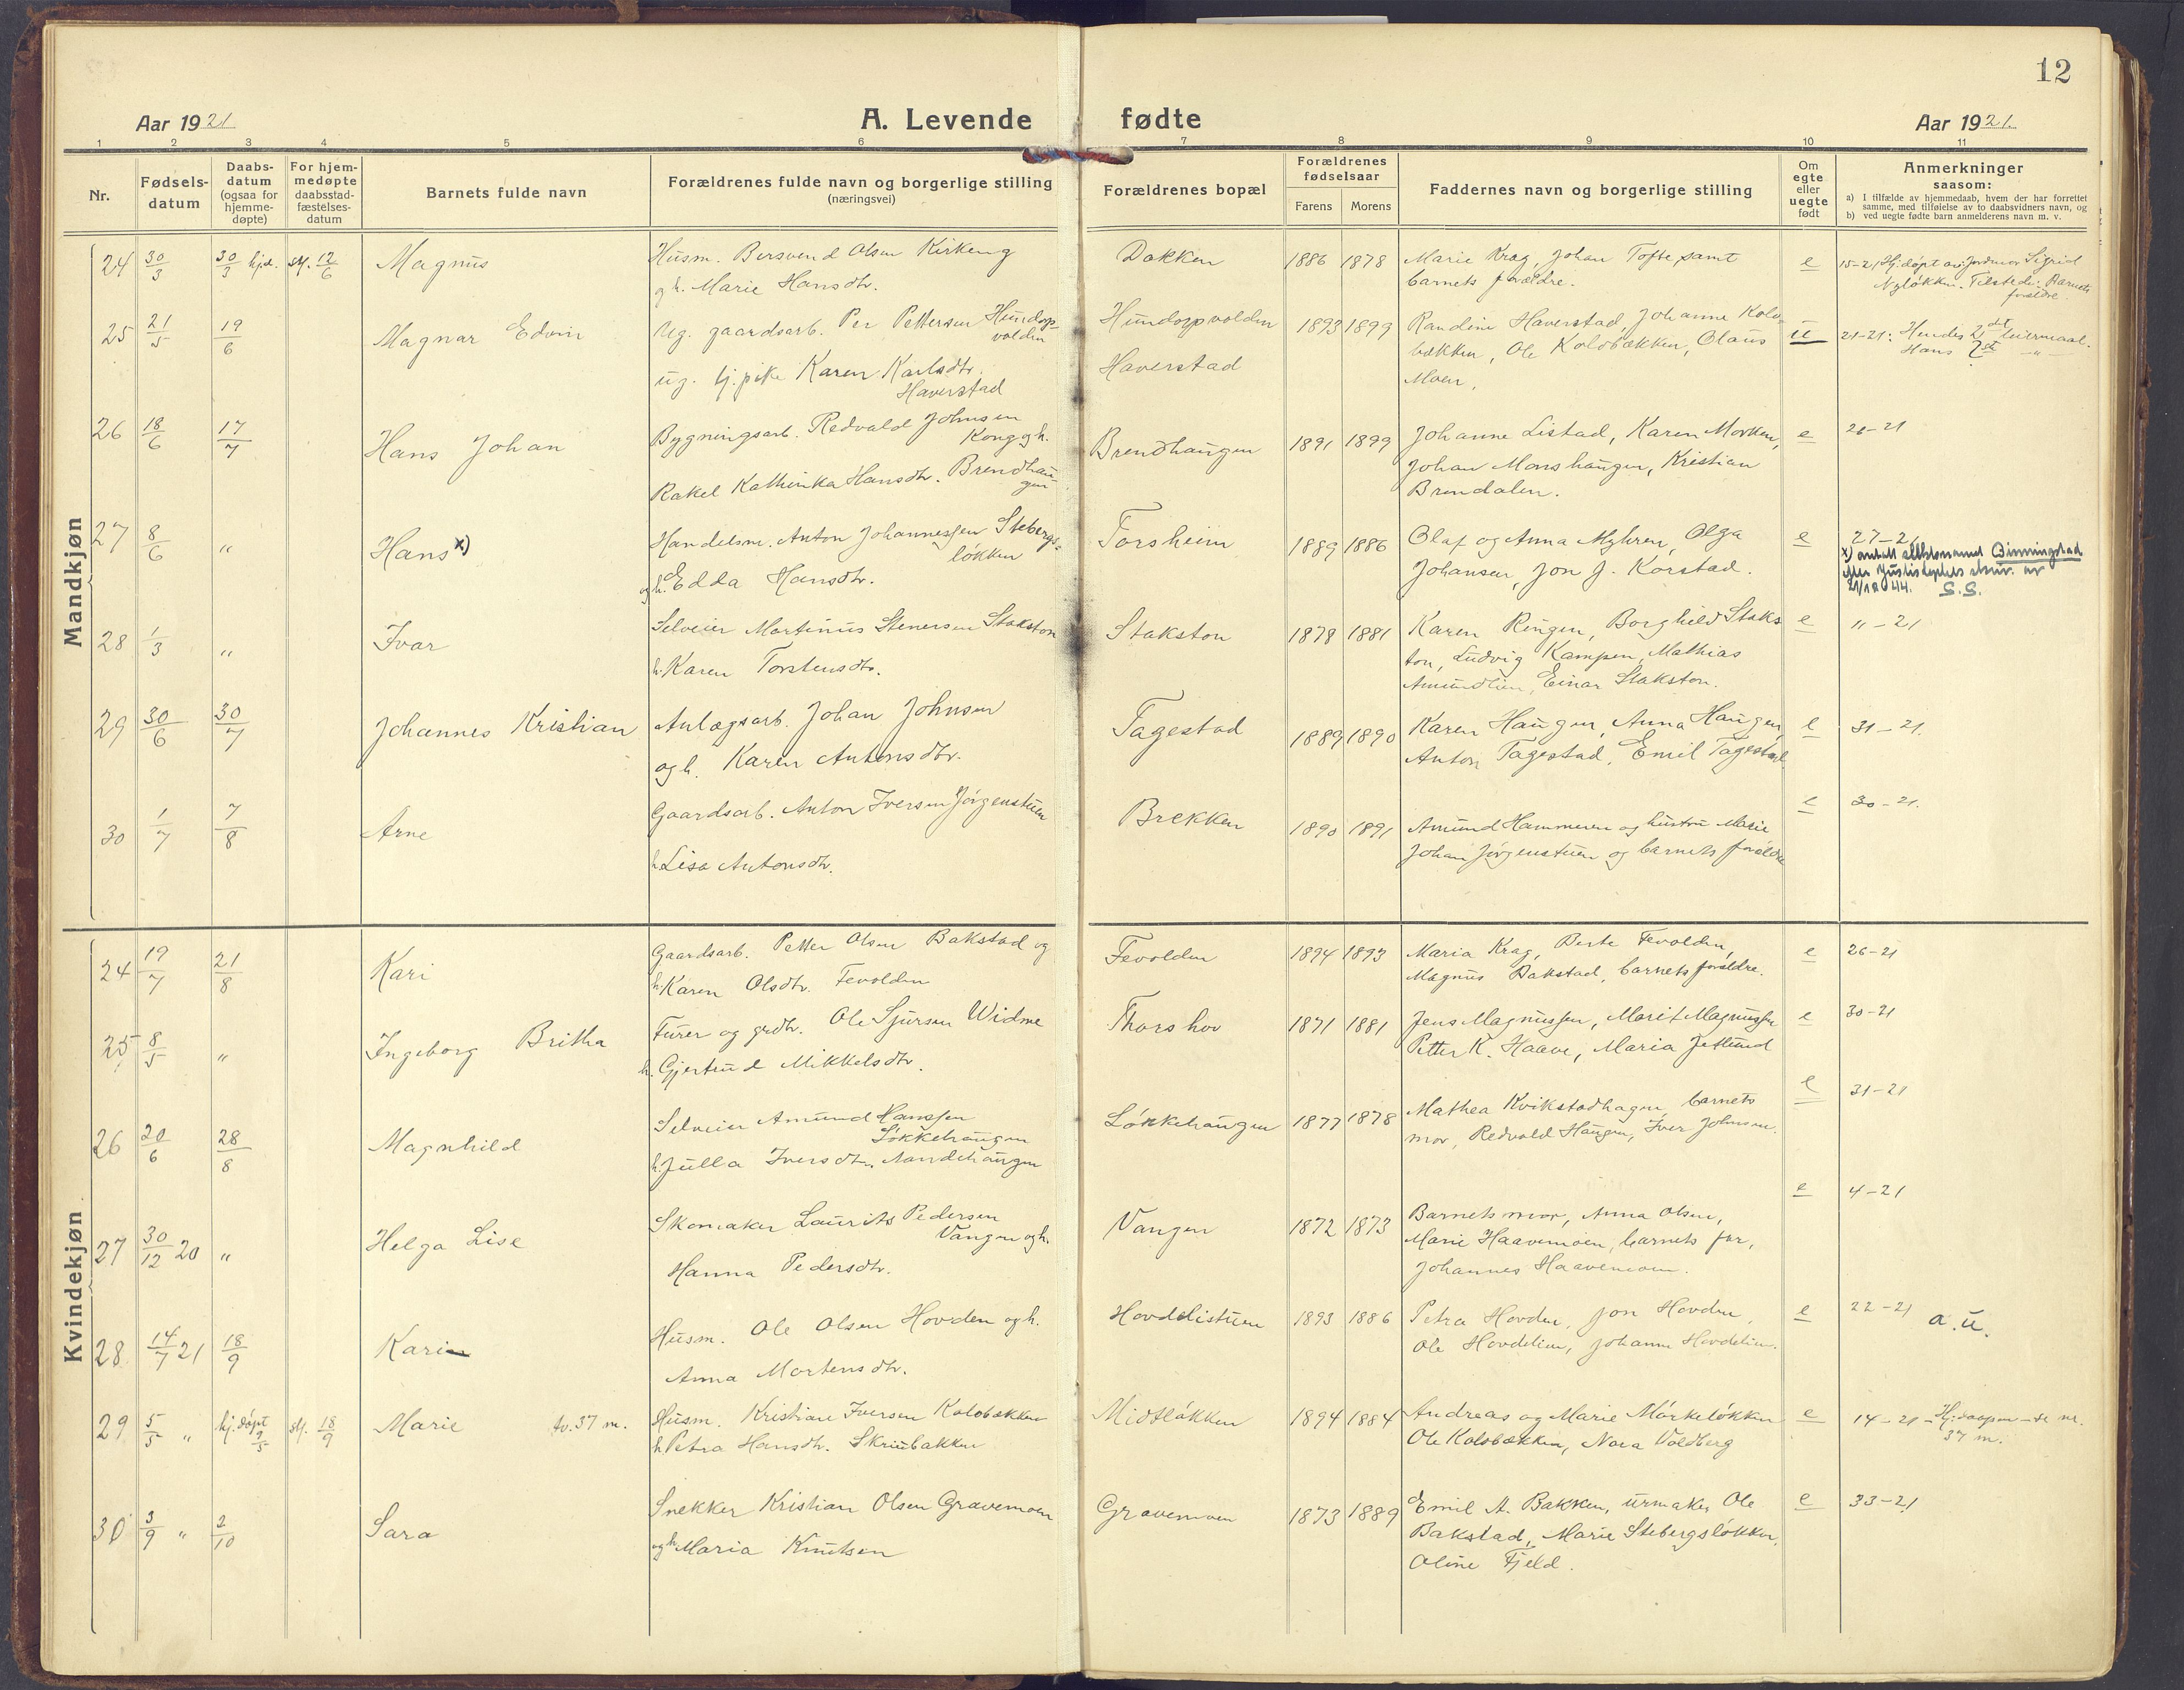 12
Aar 1921
A. Levende fødte
Aar 1921.
1 2 3 4 5 6 7 8 9 10 11
Nr.
Fødsels-
datum
Daabs-
datum
(ogsaa for
hjemme-
døpte)
For hjem-
medøpte
daabsstad-
fæstelses-
datum
Barnets fulde navn
Forældrenes fulde navn og borgerlige stilling
(næringsvei)
Forældrenes bopæl
Forældrenes
fødselsaar
Farens Morens
Faddernes navn og borgerlige stilling
Om
egte
eller
uegte
født
Anmerkninger
saasom:
a) I tilfælde av hjemmedaab, hvem der har forrettet
samme, med tilføielse av to daabsvidners navn, og
b) ved uegte fødte barn anmelderens navn m. v.
Mandkjøn
24 30/3 30/3 hjd. stf. 12/6 Magnus
Husm. Bersvend Olsen Kirkeng
og h. Marie Hansdtr.
Dakken 1886 1878
Marie Krag, Johan Tofte, samt
barnets forældre.
e
15-21 Hj. døpt av: Jordmor Sigrid
Nyløkken. Tilstede: Barnets
forældre.
25 21/5 19/6 Magnar Edvin
Ug. gaardsarb. Per Pettersen Hundorp-
volden
ug. tj. pike Karen Karlsdtr.
Haverstad
Hundorpvolden
Haverstad
1893 1899
Randine Haverstad, Johanne Kolo-
bækken, Ole Kolobækken, Olaus
Moen.
u
21-21: Hendes 2det leiermaal.
Hans 2det —"—
26 18/6 17/7 Hans Johan
Bygningsarb. Redvald Johnsen
Kong og h.
Rakel Kathinka Hansdtr. Brendhau-
gen
Brendhaugen 1891 1899
Johanne Listad, Karen Morken,
Johan Monshaugen, Kristian
Brendalen.
e
26-21
27 8/6 " Hans x)
Handelsm. Anton Johannessen Stebergs-
løkken
og h. Edda Hansdtr.
Forsheim 1889 1886
Olaf og Anna Myhren, Olga
Johansen, Jon J. Korstad.
e
27-21
x) antatt slektsnavnet Binningstad
efter Justisdeptets skriv. av
21/18 1944. S.S.
28 1/3 " Ivar
Selveier Martinus Stenersen Stakston
h. Karen Torstensdtr.
Stakston 1878 1881
Karen Ringen, Borghild Staks-
ton, Ludvig Kampen, Mathias
Amundlien, Einar Stakston.
e
" - 21
29 30/6 30/7 Johannes Kristian
Anlægsarb. Johan Johnsen
og h. Karen Antonsdtr.
Tagestad 1889 1890
Karen Haugen, Anna Haugen,
Anton Tagestad, Emil Tagestad.
e
31-21.
30 1/7 7/8 Arne
Gaardsarb. Anton Iversen Jørgenstuen
h. Lisa Antonsdtr.
Brekken 1890 1891
Amund Hammeren og hustru Marie
Johan Jørgenstuen og barnets forældre
e
30-21.
Kvindekjøn
24 19/7 21/8 Kari
Gaardsarb. Petter Olsen Bakstad og
h. Karen Olsdtr. Fevolden
Fevolden 1894 1893
Maria Krag, Berte Fevolden,
Magnus Bakstad, barnets forældre.
e
26-21
25 8/5 " Ingeborg Britha
Furer og grdbr. Ole Sjursen Widme
h. Gjertrud Mikkelsdtr.
Thorshov 1871 1881
Jens Magnussen, Marit Magnussen
Petter K. Haave, Maria Jetlund
e
30-21
26 20/6 28/8 Magnhild
Selveier Amund Hanssen
Løkkehaugen
h. Julla Iversdtr. Sandehaugen
Løkkehaugen 1877 1878
Mathea Kvikstadhagen, barnets
mor, Redvald Haugen, Iver Johnsen.
e
31-21
27 30/12 20 " Helga Lise
Skomaker Laurits Pedersen
Vangen og h.
Hanna Pedersdtr.
Vangen 1872 1873
Barnets mor, Anna Olsen,
Marie Haavemoen, barnets far,
Johannes Haavemoen.
e
4-21
28 14/7 21 18/9 Kari
Husm. Ole Olsen Hovden og h.
Anna Mortensdtr.
Hovdelistuen 1893 1886
Petra Hovden, Jon Hovden,
Ole Hovdelien, Johanne Hovdelien.
e
22-21 a.u.
29 5/5 " hj. døpt 9/5 stf. 18/9 Marie tv. 37 m.
Husm. Kristian Iversen Kolobækken
h. Petra Hansdtr. Skriubakken
Midtløkken 1894 1884
Andreas og Marie Mørkeløkken
Ole Kolobækken, Nora Voldberg
e
14-21 - Hj. daapen - se nr.
37 m.
30 3/9 " 2/10 Sara
Snekker Kristian Olsen Gravemoen
og h. Maria Knutsen
Gravemoen 1873 1889
Emil A. Bakken, urmaker Ole
Bakstad, Marie Stebergsløkken,
Oline Fjeld.
e
33-21